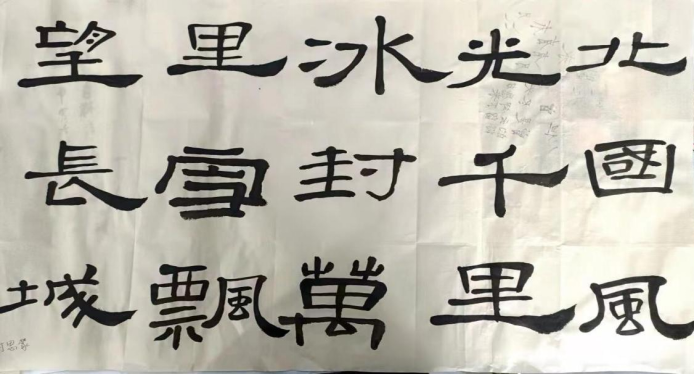 北國風
光千里
冰封萬
里雪飄
望長城